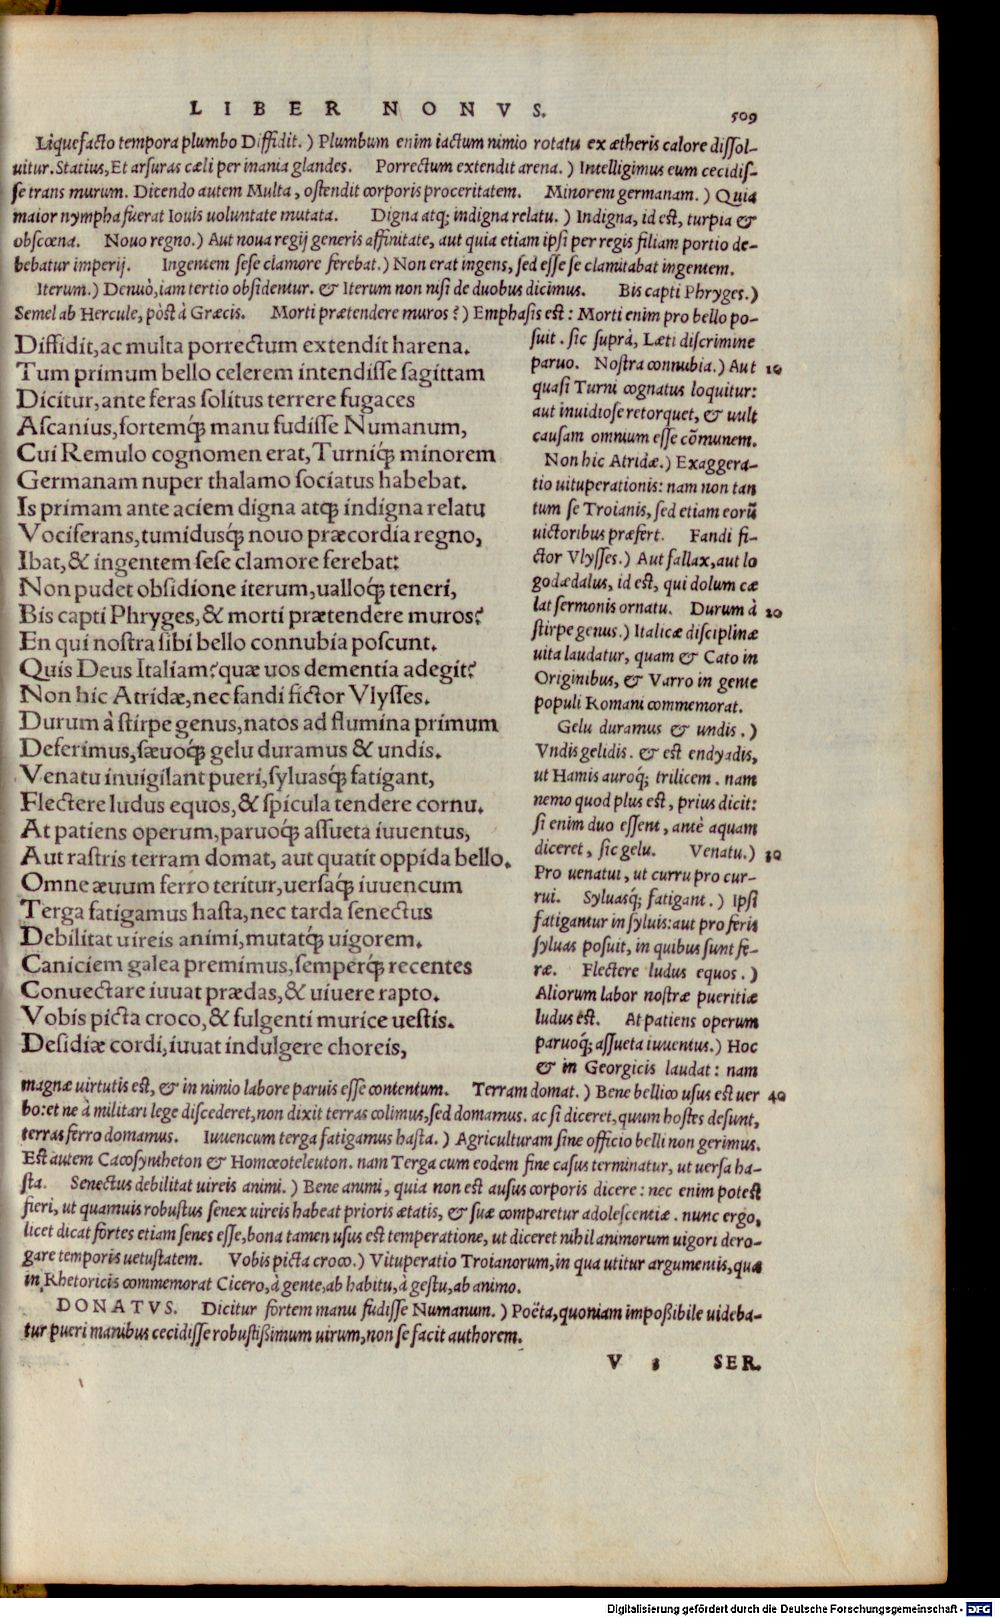 LIBER NONVS. 509
Liquefacto tempora plumbo Diffidit.) Plumbum enim iactum nimio rotatu ex ætheris calore dissol-
uitur. Statius, Et arsuras cæli per inania glandes. Porrectum extendit arena.) Intelligimus eum cecidis-
se trans murum. Dicendo autem Multa, ostendit corporis proceritatem. Minorem germanam.) Quia
maior nympha fuerat Iouis uoluntate mutata. Digna atq; indigna relatu.) Indigna, id est, turpia &
obscœna. Nouo regno.) Aut noua regij generis affinitate, aut quia etiam ipsi per regis filiam portio de-
bebatur imperij. Ingentem sese clamore ferebat.) Non erat ingens, sed esse se clamitabat ingentem.
Iterum.) Denuò, iam tertio obsidentur. & Iterum non nisi de duobus dicimus. Bis capti Phryges.)
Semel ab Hercule, pòst à Græcis. Morti prætendere muros?) Emphasis est: Morti enim pro bello po-
Diffidit, ac multa porrectum extendit harena.
Tum primum bello celerem intendisse sagittam
Dicitur, ante feras solitus terrere fugaces
Ascanius, fortemq́; manu fudisse Numanum,
Cui Remulo cognomen erat, Turniq́; minorem
Germanam nuper thalamo sociatus habebat.
Is primam ante aciem digna atq; indigna relatu
Vociferans, tumidusq́; nouo præcordia regno,
Ibat, & ingentem sese clamore ferebat:
Non pudet obsidione iterum, ualloq́; teneri,
Bis capti Phryges, & morti prætendere muros?
En qui nostra sibi bello connubia poscunt.
Quis Deus Italiam? quæ uos dementia adegit?
Non hic Atridæ, nec fandi fictor Vlysses.
Durum à stirpe genus, natos ad flumina primum
Deferimus, sæuoq́; gelu duramus & undis.
Venatu inuigilant pueri, syluasq́; fatigant,
Flectere ludus equos, & spicula tendere cornu.
At patiens operum, paruoq́; assueta iuuentus,
Aut rastris terram domat, aut quatit oppida bello.
Omne æuum ferro teritur, uersaq́; iuuencum
Terga fatigamus hasta, nec tarda senectus
Debilitat uireis animi, mutatq́; uigorem.
Caniciem galea premimus, semperq́; recentes
Conuectare iuuat prædas, & uiuere rapto.
Vobis picta croco, & fulgenti murice uestis.
Desidiæ cordi, iuuat indulgere choreis,
suit. sic suprà, Læti discrimine
paruo. Nostra connubia.) Aut 10
quasi Turni cognatus loquitur:
aut inuidiose retorquet, & uult
causam omnium esse cōmunem.
Non hic Atridæ.) Exaggera-
tio uituperationis: nam non tan
tum se Troianis, sed etiam eorū
uictoribus præfert. Fandi fi-
ctor Vlysses.) Aut fallax, aut lo
godædalus, id est, qui dolum cæ
lat sermonis ornatu. Durum à 20
stirpe genus.) Italicæ disciplinæ
uita laudatur, quam & Cato in
Originibus, & Varro in gente
populi Romani commemorat.
Gelu duramus & undis.)
Vndis gelidis. & est endyadis,
ut Hamis auroq́; trilicem. nam
nemo quod plus est, prius dicit:
si enim duo essent, antè aquam
diceret, sic gelu. Venatu.) 30
Pro uenatui, ut curru pro cur-
rui. Syluasq́; fatigant.) Ipsi
fatigantur in syluis: aut pro feris
syluas posuit, in quibus sunt fe-
ræ. Flectere ludus equos.)
Aliorum labor nostræ pueritiæ
ludus est. At patiens operum
paruoq́; assueta iuuentus.) Hoc
& in Georgicis laudat: nam
magnæ uirtutis est, & in nimio labore paruis esse contentum. Terram domat.) Bene bellico usus est uer 40
bo: et ne à militari lege discederet, non dixit terras colimus, sed domamus. ac si diceret, quum hostes desunt,
terras ferro domamus. Iuuencum terga fatigamus hasta.) Agriculturam sine officio belli non gerimus.
Est autem Cacosyntheton & Homœoteleuton. nam Terga cum eodem fine casus terminatur, ut uersa ha-
sta. Senectus debilitat uireis animi.) Bene animi, quia non est ausus corporis dicere: nec enim potest
fieri, ut quamuis robustus senex uireis habeat prioris ætatis, & suæ comparetur adolescentiæ. nunc ergo,
licet dicat fortes etiam senes esse, bona tamen usus est temperatione, ut diceret nihil animorum uigori dero-
gare temporis uetustatem. Vobis picta croco.) Vituperatio Troianorum, in qua utitur argumentis, quæ
in Rhetoricis commemorat Cicero, à gente, ab habitu, à gestu, ab animo.
DONATVS. Dicitur fortem manu fudisse Numanum.) Poëta, quoniam impoßibile uideba-
tur pueri manibus cecidisse robustißimum uirum, non se facit authorem.
V 3 SER.
Digitalisierung gefördert durch die Deutsche Forschungsgemeinschaft - DFG